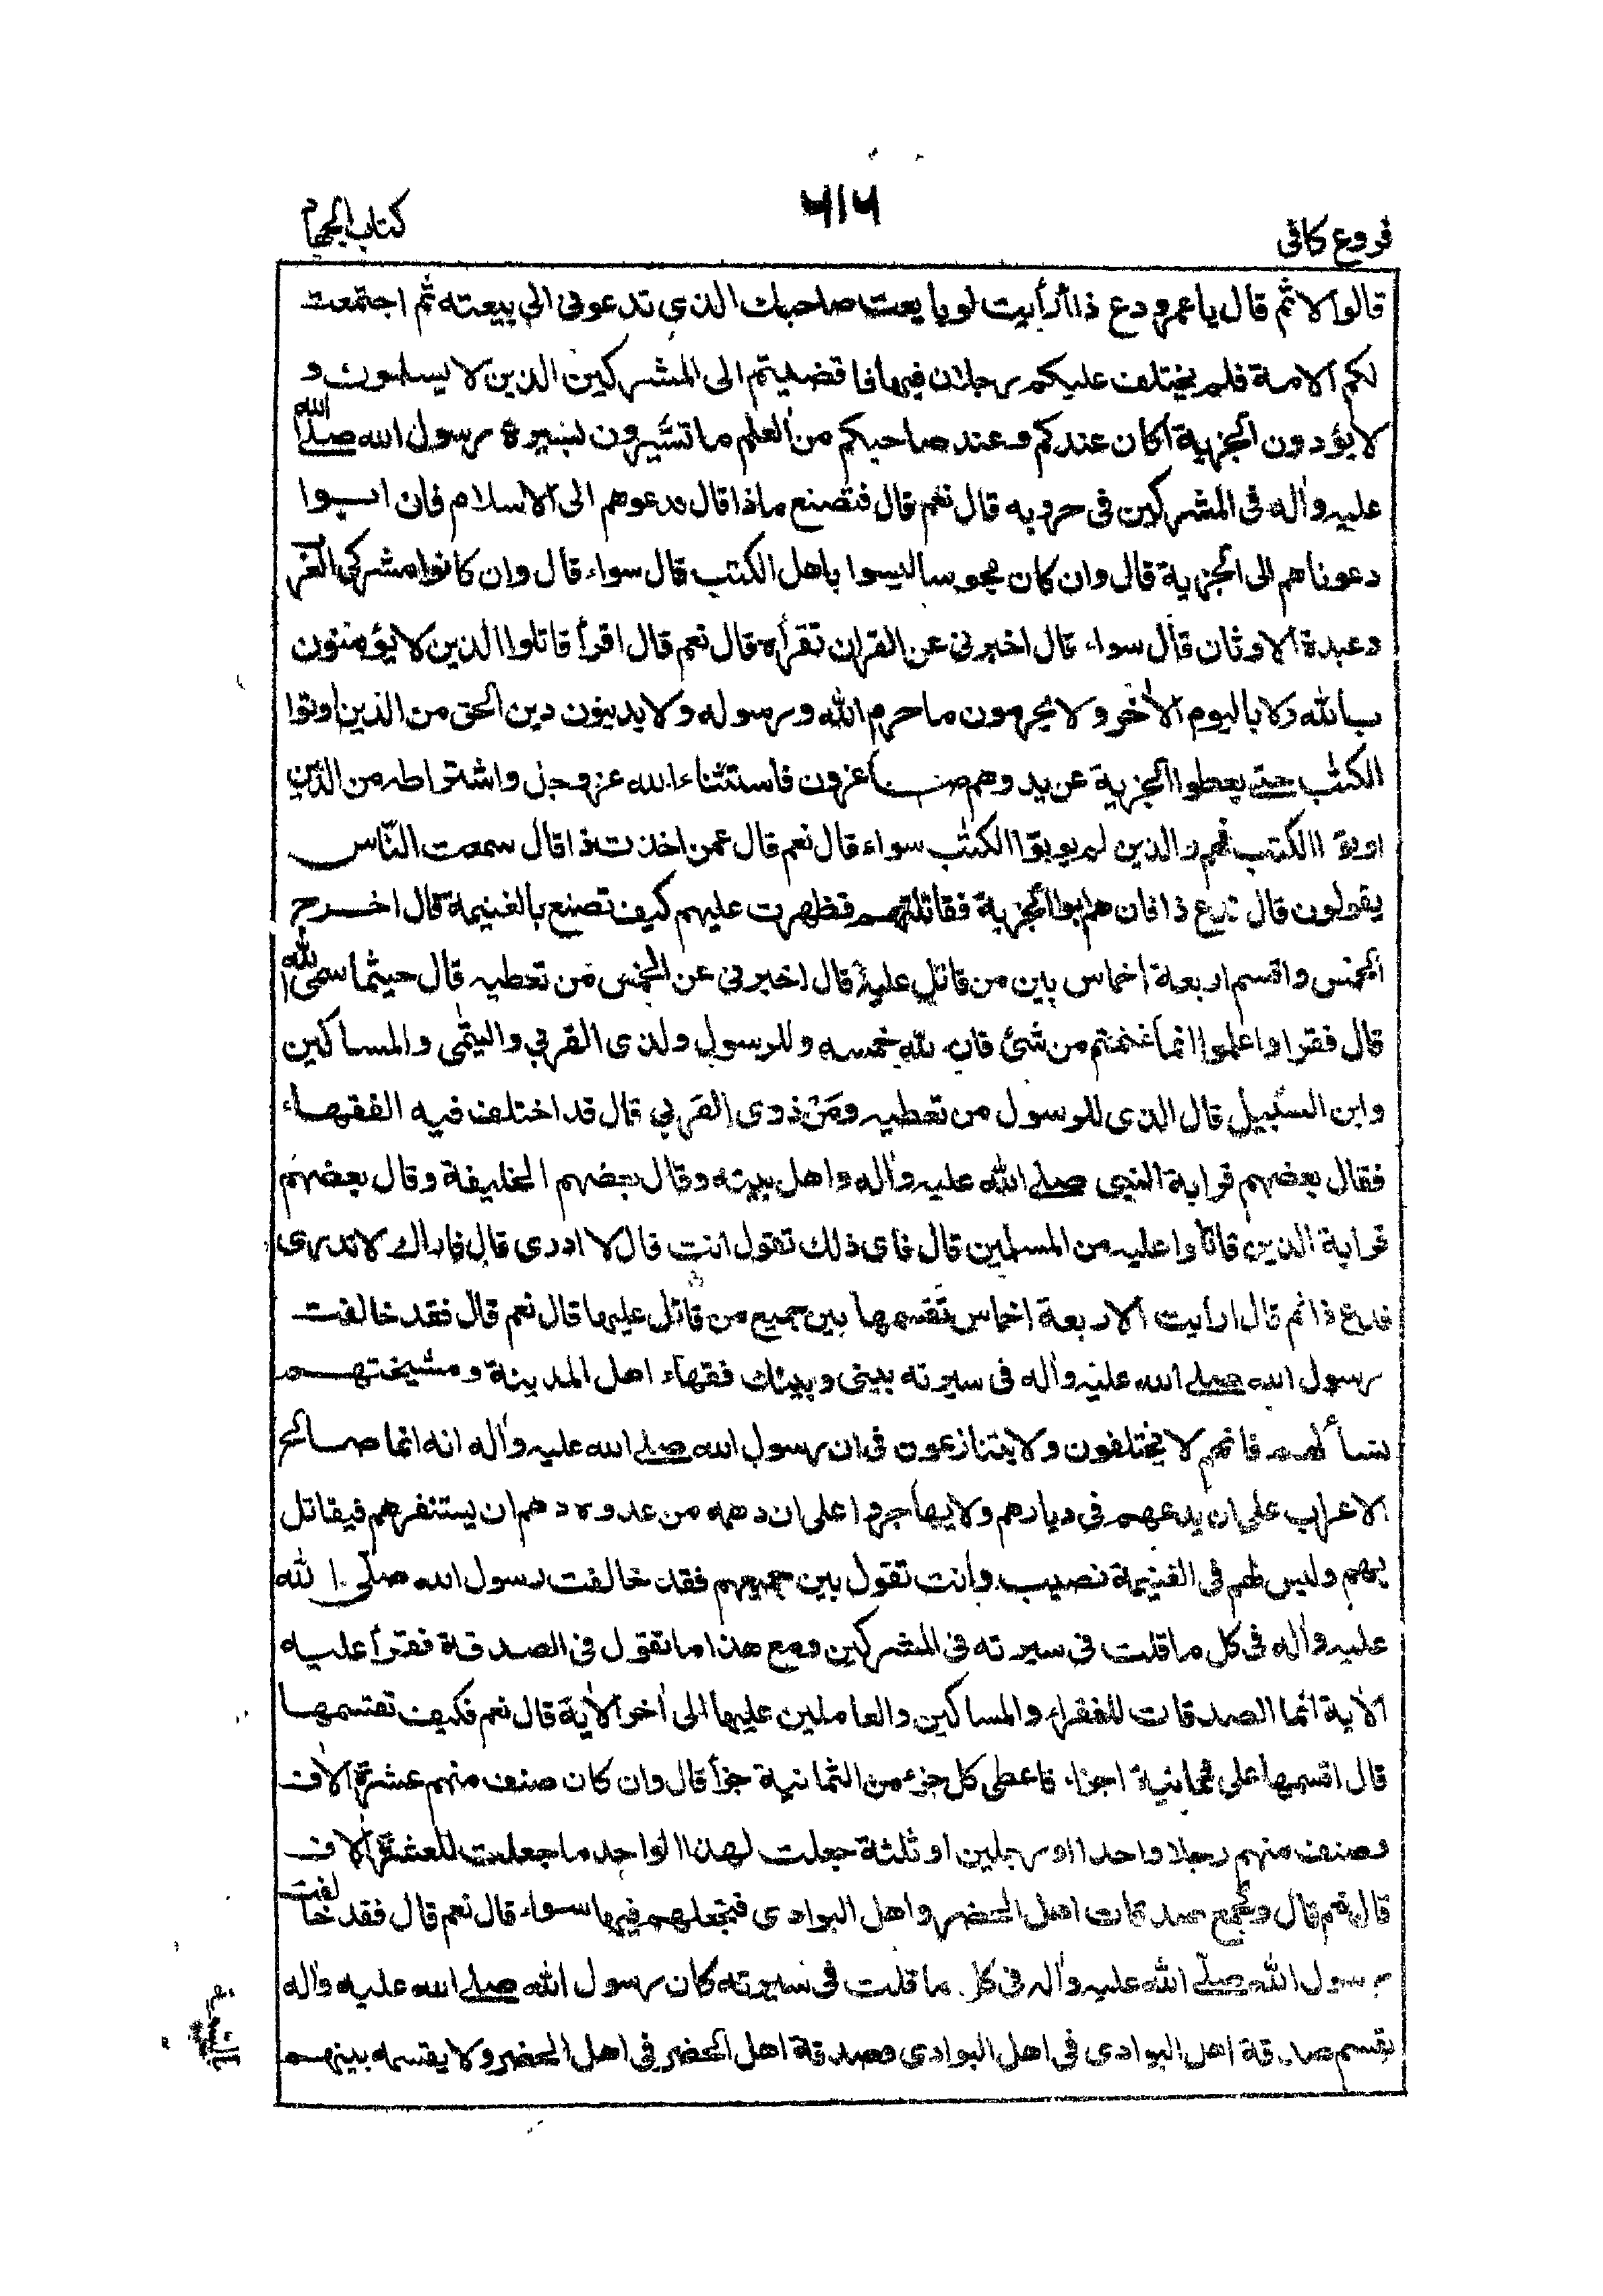 فروع كافى
٦١٦
كتاب الجهاد
قالوا لا ثم قال يا عمرو دع ذا أرأيت لو بايعت صاحبك الذى تدعونى الى بيعته ثم اجتمعت
لكم الامة فلم يختلف عليكم رجلان فيها فافضيتم الى المشركين الذين لا يسلمون و
لا يؤدون الجزية أكان عندكم وعند صاحبكم من العلم ما تسيرون بسيرة رسول الله صلى الله
عليه وآله فى المشركين فى حروبه قال نعم قال فتصنع ماذا قال ندعوهم الى الاسلام فان ابوا
دعوناهم الى الجزية قال وان كان مجوسا ليسوا باهل الكتب قال سواء قال وان كانوا مشركى العرب
وعبدة الاوثان قال سواء قال اخبرنى عن القران تقرأه قال نعم قال اقرأ قاتلوا الذين لا يؤمنون
بالله ولا باليوم الآخر ولا يحرمون ما حرم الله ورسوله ولا يدينون دين الحق من الذين اوتوا
الكتب حتى يعطوا الجزية عن يد وهم صاغرون فاستثناء الله عز وجل واشتراطه من الذين
اوتوا الكتب فهم والذين لم يوتوا الكتب سواء قال نعم قال عمن اخذت ذا قال سمعت الناس
يقولون قال فدع ذا فان هم ابوا الجزية فقاتلتهم فظهرت عليهم كيف تصنع بالغنيمة قال اخرج
الخمس واقسم اربعة اخماس بين من قاتل عليه قال اخبرنى عن الخمس من تعطيه قال حيثما سمى الله
قال فقرا واعلموا انما غنمتم من شئ فان لله خمسه وللرسول ولذى القربى واليتمى والمساكين
وابن السبيل قال الذى للرسول من تعطيه ومن ذوى القربى قال قد اختلف فيه الفقهاء
فقال بعضهم قرابة النبى صلى الله عليه وآله واهل بيته وقال بعضهم الخليفة وقال بعضهم
قرابة الذين قاتلوا عليه من المسلمين قال فاى ذلك تقول انت قال لا ادرى قال فاراك لا تدرى
فدع ذا ثم قال ارأيت الاربعة اخماس تقسمها بين جميع من قاتل عليها قال نعم قال فقد خالفت
رسول الله صلى الله عليه وآله فى سيرته بينى وبينك فقهاء اهل المدينة ومشيختهم
نسألهم فانهم لا يختلفون ولا يتنازعون فى ان رسول الله صلى الله عليه وآله انه انما صالح
الاعراب على ان يدعهم فى ديارهم ولا يهاجروا على ان دهمه من عدوه دهم ان يستنفرهم فيقاتل
بهم وليس لهم فى الغنيمة نصيب وانت تقول بين جميعهم فقد خالفت رسول الله صلى الله
عليه وآله فى كل ما قلت فى سيرته فى المشركين ومع هذا ما تقول فى الصدقة فقرأ عليه
الآية انما الصدقات للفقراء والمساكين والعاملين عليها الى آخر الآية قال نعم فكيف تقسمها
قال اقسمها على ثمانية اجزاء فاعطى كل جزء من الثمانية جزأ قال وان كان صنف منهم عشرة آلاف
وصنف منهم رجلا واحدا او رجلين او ثلثة جعلت لهذا الواحد ما جعلت للعشرة آلاف
قال نعم قال وتجمع صدقات اهل الحضر واهل البوادى فتجعلهم فيها سواء قال نعم قال فقد خالفت
رسول الله صلى الله عليه وآله فى كل ما قلت فى سيرته كان رسول الله صلى الله عليه وآله
يقسم صدقة اهل البوادى فى اهل البوادى وصدقة اهل الحضر فى اهل الحضر ولا يقسمه بينهم